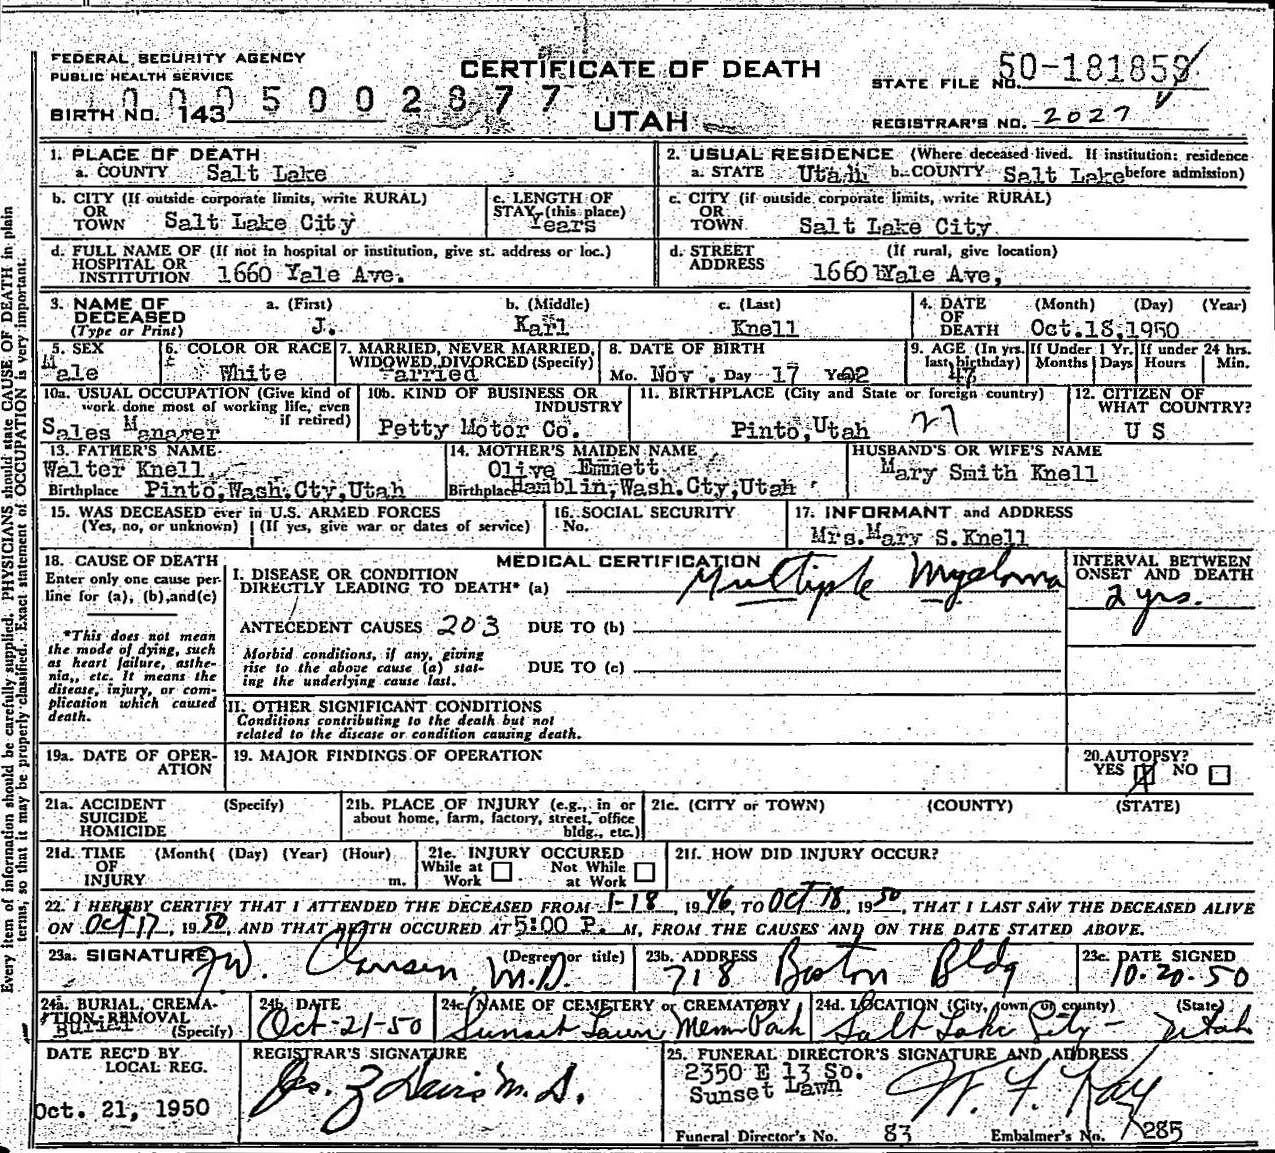 FEDERAL SECURITY AGENCY
PUBLIC HEALTH SERVICE
CERTIFICATE OF DEATH
STATE FILE NO. 50-181859
BIRTH NO. 143 0005002877
UTAH
REGISTRAR'S NO. 2027
1. PLACE OF DEATH
a. COUNTY Salt Lake
2. USUAL RESIDENCE (Where deceased lived. If institution: residence before admission)
a. STATE Utah b. COUNTY Salt Lake
b. CITY (If outside corporate limits, write RURAL)
OR
TOWN Salt Lake City
c. LENGTH OF
STAY (this place)
Years
c. CITY (if outside corporate limits, write RURAL)
OR
TOWN Salt Lake City
d. FULL NAME OF (If not in hospital or institution, give st. address or loc.)
HOSPITAL OR
INSTITUTION 1660 Yale Ave.
d. STREET (If rural, give location)
ADDRESS 1660 Yale Ave,
3. NAME OF DECEASED
(Type or Print)
a. (First) b. (Middle) c. (Last)
J. Karl Knell
4. DATE OF DEATH (Month) (Day) (Year)
Oct.18,1950
5. SEX
Male
6. COLOR OR RACE
White
7. MARRIED, NEVER MARRIED,
WIDOWED, DIVORCED (Specify)
Married
8. DATE OF BIRTH
Mo. Nov. Day 17 Yr 02
9. AGE (In yrs. last birthday)
47
If Under 1 Yr.
Months Days
If under 24 hrs.
Hours Min.
10a. USUAL OCCUPATION (Give kind of
work done most of working life, even
if retired)
Sales Manager
10b. KIND OF BUSINESS OR
INDUSTRY
Petty Motor Co.
11. BIRTHPLACE (City and State or foreign country)
Pinto, Utah 27
12. CITIZEN OF
WHAT COUNTRY?
U S
13. FATHER'S NAME
Walter Knell
Birthplace Pinto,Wash.Cty,Utah
14. MOTHER'S MAIDEN NAME
Olive Emmett
Birthplace Hamblin,Wash.Cty,Utah
HUSBAND'S OR WIFE'S NAME
Mary Smith Knell
15. WAS DECEASED ever in U.S. ARMED FORCES
(Yes, no, or unknown) (If yes, give war or dates of service)
16. SOCIAL SECURITY
No.
17. INFORMANT and ADDRESS
Mrs.Mary S.Knell
18. CAUSE OF DEATH
Enter only one cause per
line for (a), (b), and (c)
*This does not mean
the mode of dying, such
as heart failure, asthe-
nia,, etc. It means the
disease, injury, or com-
plication which caused
death.
MEDICAL CERTIFICATION
I. DISEASE OR CONDITION
DIRECTLY LEADING TO DEATH* (a) Multiple Myeloma
ANTECEDENT CAUSES 203 DUE TO (b)
Morbid conditions, if any, giving
rise to the above cause (a) stat-
ing the underlying cause last.
DUE TO (c)
II. OTHER SIGNIFICANT CONDITIONS
Conditions contributing to the death but not
related to the disease or condition causing death.
INTERVAL BETWEEN
ONSET AND DEATH
2 yrs.
19a. DATE OF OPER-
ATION
19. MAJOR FINDINGS OF OPERATION
20. AUTOPSY?
YES X NO
21a. ACCIDENT (Specify)
SUICIDE
HOMICIDE
21b. PLACE OF INJURY (e.g., in or
about home, farm, factory, street, office
bldg., etc.)
21c. (CITY or TOWN) (COUNTY) (STATE)
21d. TIME (Month( (Day) (Year) (Hour)
OF
INJURY m.
21e. INJURY OCCURED
While at Work Not While at Work
21f. HOW DID INJURY OCCUR?
22. I HEREBY CERTIFY THAT I ATTENDED THE DECEASED FROM 1-18, 1946, TO Oct 18, 1950, THAT I LAST SAW THE DECEASED ALIVE
ON Oct 17, 1950, AND THAT DEATH OCCURED AT 5:00 P. M, FROM THE CAUSES AND ON THE DATE STATED ABOVE.
23a. SIGNATURE (Degree or title)
M.D.
23b. ADDRESS
718 Boston Bldg
23c. DATE SIGNED
10-20-50
24a. BURIAL, CREMA-
TION REMOVAL
Burial (Specify)
24b. DATE
Oct-21-50
24c. NAME OF CEMETERY or CREMATORY
Sunset Lawn Mem Park
24d. LOCATION (City, town or county) (State)
Salt Lake City - Utah
DATE REC'D BY
LOCAL REG.
Oct. 21, 1950
REGISTRAR'S SIGNATURE
M.D.
25. FUNERAL DIRECTOR'S SIGNATURE AND ADDRESS
2350 E 13 So.
Sunset Lawn
Funeral Director's No. 83 Embalmer's No. 285
Every item of information should be carefully supplied. PHYSICIANS should state CAUSE OF DEATH in plain
terms, so that it may be properly classified. Exact statement of OCCUPATION is very important.